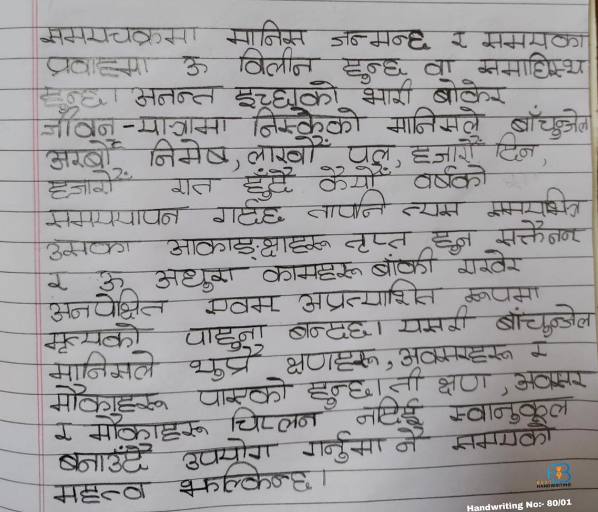 समयचक्रमा मानिस जन्मन्छ र समयका
प्रवाहमा ऊ विलीन हुन्छ वा समाधिस्थ
हुन्छ। अनन्त इच्छाको भारी बोकेर
जीवन-यात्रामा निस्केको मानिसले बाँचुन्जेल
अरबौं निमेष, लाखौं पल, हजारौं दिन,
हजारौं रात हुँदै कैयौं वर्षको
समययापन गर्दछ तापनि त्यस समयभित्र
उसका आकाङ्क्षाहरू तृप्त हुन सक्तैनन
र ऊ अधुरा कामहरू बाँकी राखेर
अनपेक्षित एवम अप्रत्याशित रूपमा
मृत्युको पाहुना बन्दछ। यसरी बाँचुन्जेल
मानिसले थुप्रै क्षणहरू, अवसरहरू र
मौकाहरू पाएको हुन्छ। ती क्षण, अवसर
र मौकाहरू चिप्लन नदिई स्वानुकूल
बनाउँदै उपयोग गर्नुमा नै समयको
महत्व झल्किन्छ।
HANDWRITING
Handwriting No:- 80/01